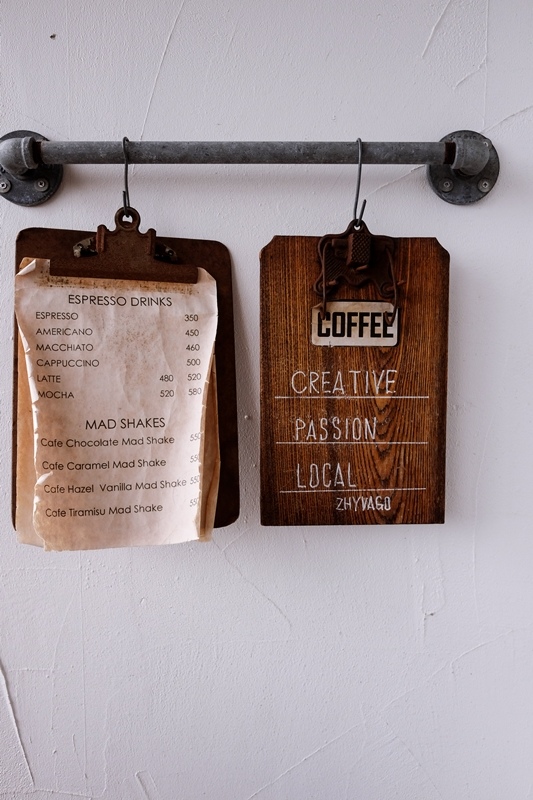 ESPRESSO DRINKS
ESPRESSO 350
AMERICANO 450
MACCHIATO 460
CAPPUCCINO 500
LATTE 480 520
MOCHA 520 580
MAD SHAKES
Cafe Chocolate Mad Shake
Cafe Caramel Mad Shake
Cafe Hazel Vanilla Mad Shake
Cafe Tiramisu Mad Shake
COFFEE
CREATIVE
PASSION
LOCAL
ZHYVAGO